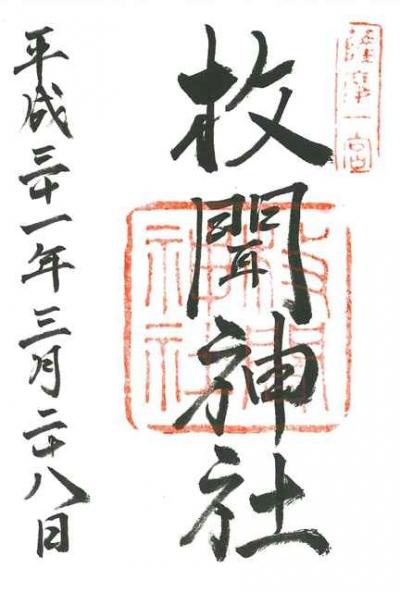 薩摩一宮
枚聞神社
枚聞
神社
平成三十一年三月二十八日